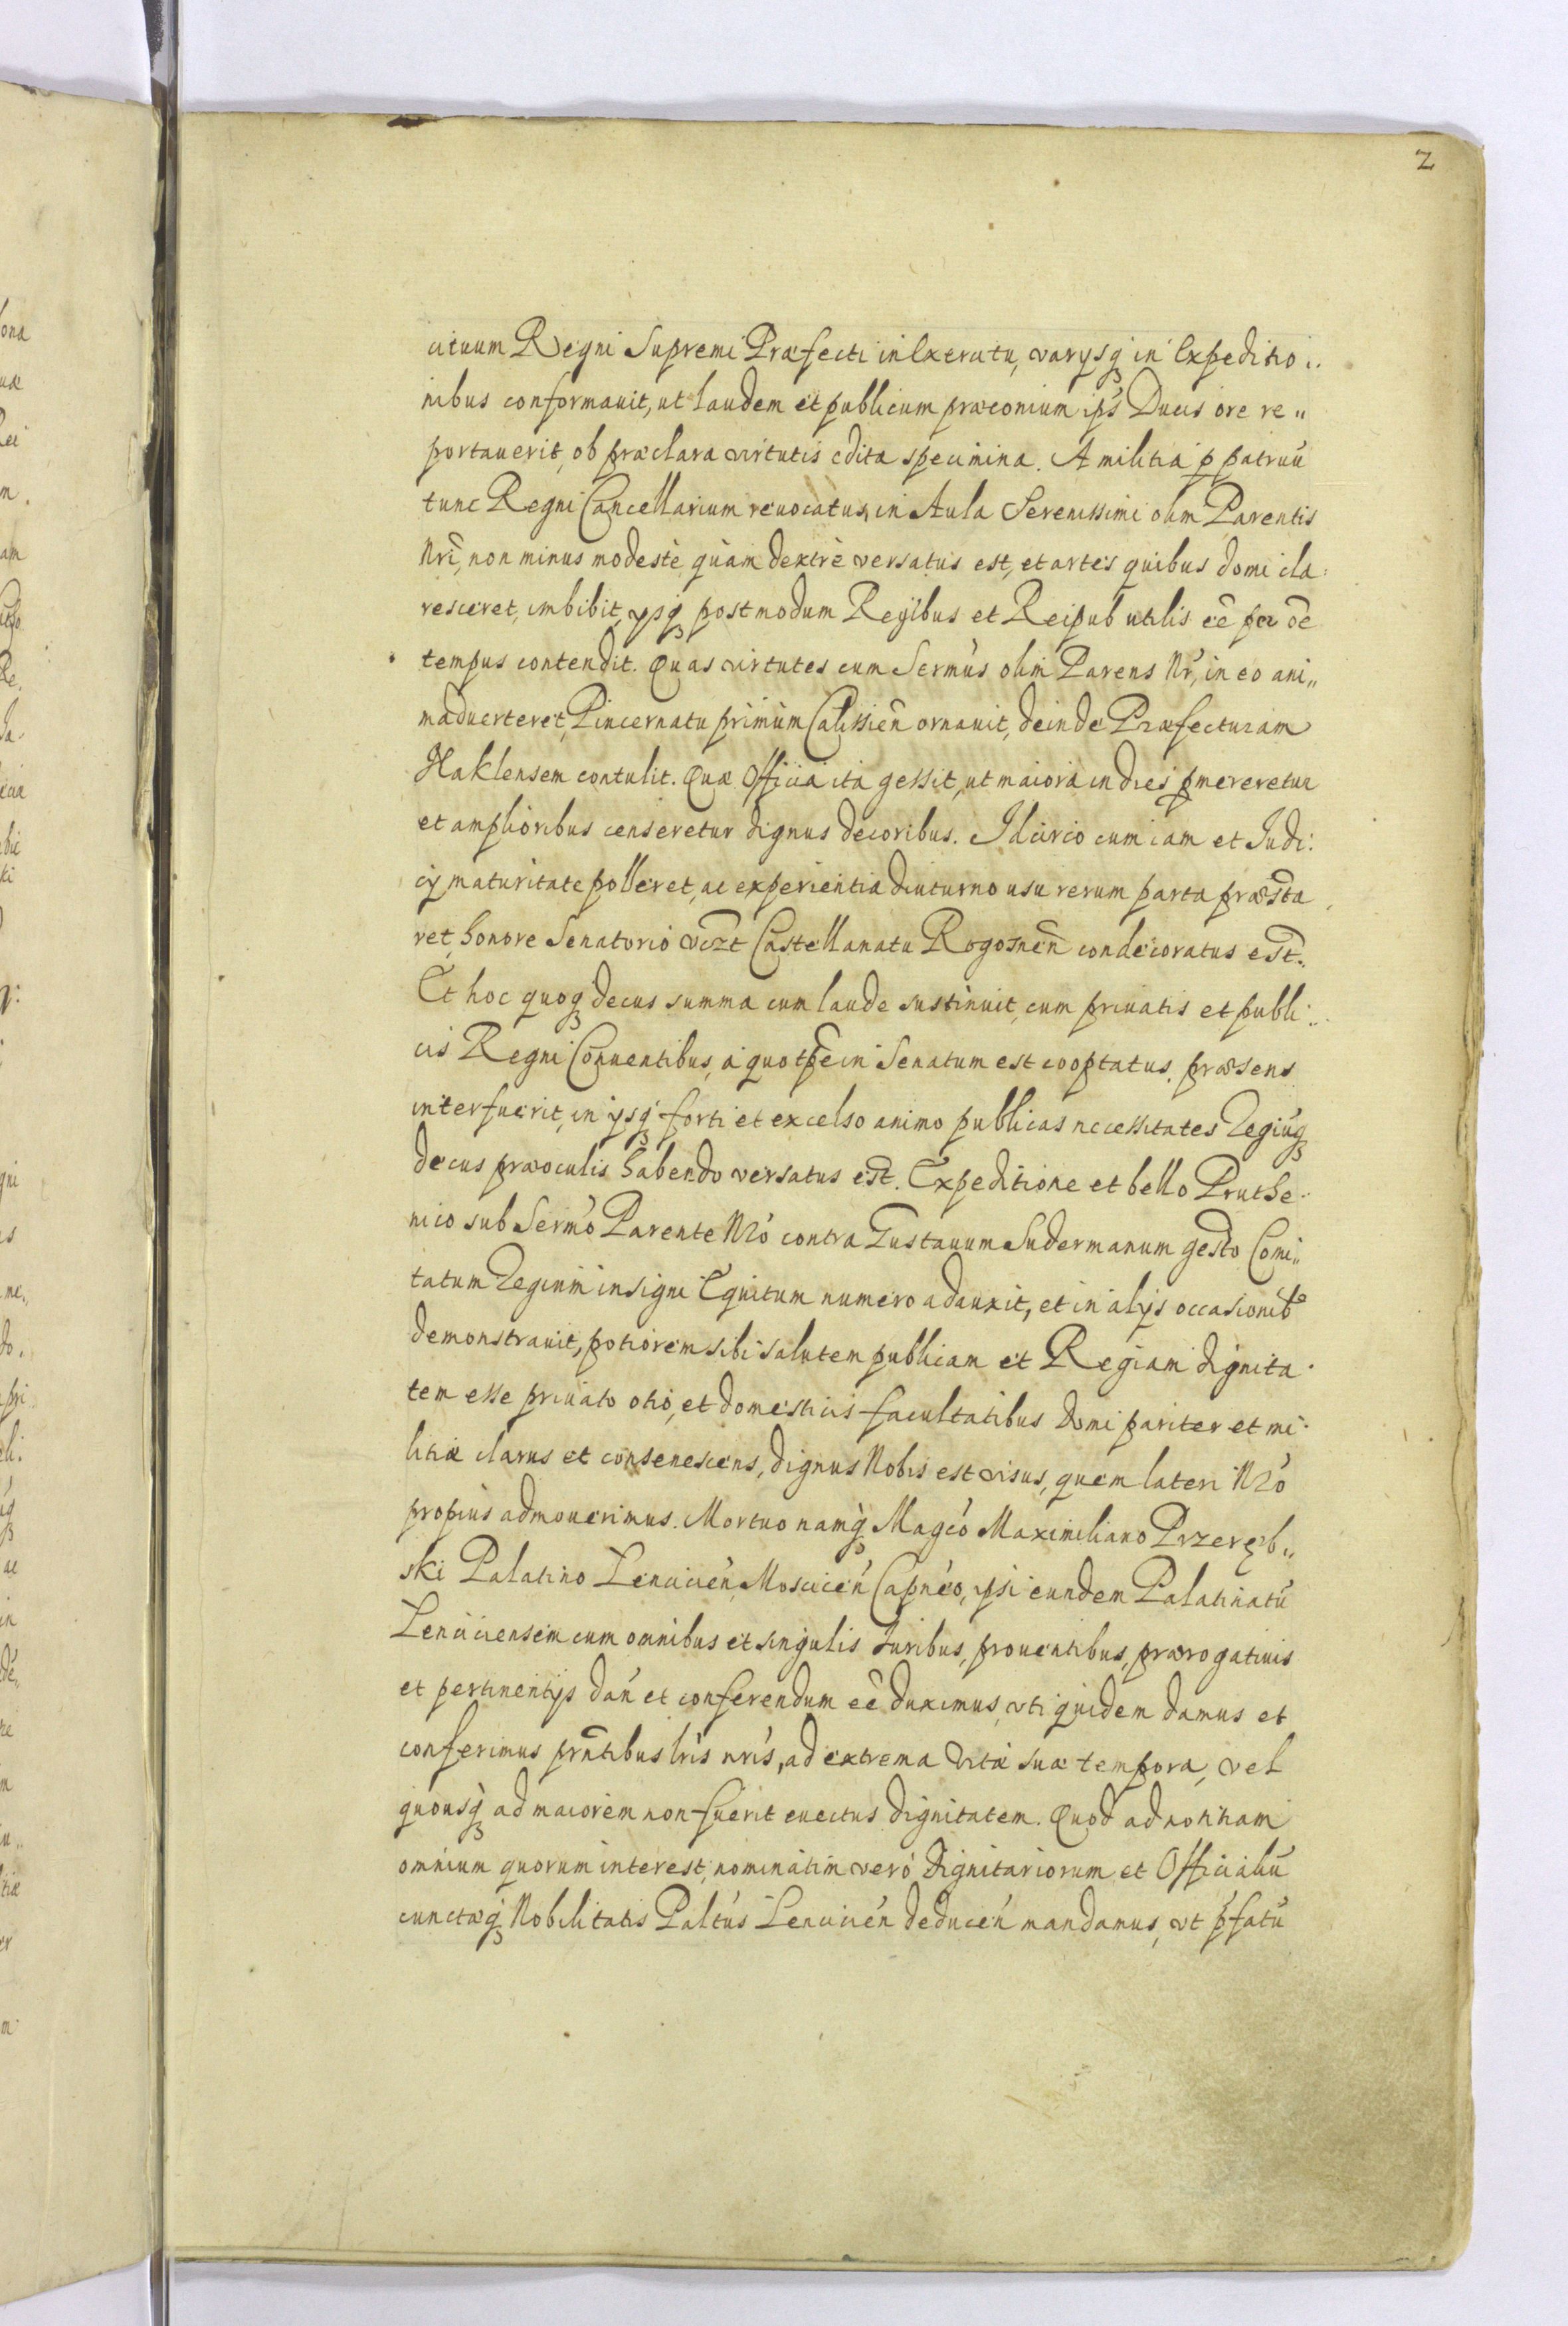 2
cituum Regni Supremi Præfecti in Exercitu, varysq in Expeditio
nibus conformauit, ut laudem et publicum præconium ips Ducis ore re„
portauerit, ob præclara virtutis edita specimina. A militia p patruū
tunc Regni Cancellarium reuocatus, in Aula Serenissimi olim Parentis
Nrī, non minus modestè quàm dextrè versatus est, et artes quibus domi cla
resceret, imbibit, ysq postmodum Regibus et Reipub utilis eē per oē
tempus contendit. Quas virtutes cum Sermus olim Parens Nr, in eo ani„
maduerteret, Pincernatu primùm Calissieñ ornauit, deinde Præfecturam
Naklensem contulit. Quæ Officia ita gessit, ut maiora indies pmereretur
et amplioribus censeretur dignus decoribus. Idcirco cum iam et Judi:
cy maturitate polleret, ac experientia diuturno usu rerum parta præsta
ret, honore Senatorio vizt Castellanatu Rogozneñ condecoratus est.
Et hoc quoq decus summa cum laude sustinuit, cum priuatis et publi„
cis Regni Conuentibus, a quo tpe in Senatum est cooptatus, præsens
interfuerit, in ysq forti et excelso animo publicas necessitates Regiuq
decus præoculis habendo versatus est. Expeditione et bello Pruthe
nico sub Sermo Parente Nro contra Gustauum Sudermanum gesto Comi„
tatum Regium insigni Equitum numero adauxit, et in alys occasionib
demonstrauit, potiorem sibi salutem publicam et Regiam dignita
tem esse priuato otio, et domesticis facultatibus domi pariter et mi
litiæ clarus et consenescens, dignus Nobis est visus, quem lateri Nro
propius admouerimus. Mortuo namq Magco Maximiliano Przeręb„
ski Palatino Lencicień, Moscicen Capneo, ysi eundem Palatinatū
Lenciciensem cum omnibus et singulis Juribus, prouentibus, prærogatiuis
et pertinentys dan et conferendum eē duximus, vti quidem damus et
conferimus prntibus lris nris, ad extrema vitæ suæ tempora, vel
quousq ad maiorem non fuerit euectus dignitatem. Quod ad notitiam
omnium quorum interest, nominatim verò Dignitariorum et Officialiū
cunctæq Nobilitatis Paltus Lencicień deducen mandamus, vt pfatū